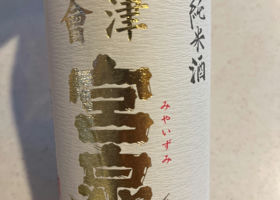 純米酒
會津
宮泉
みやいずみ